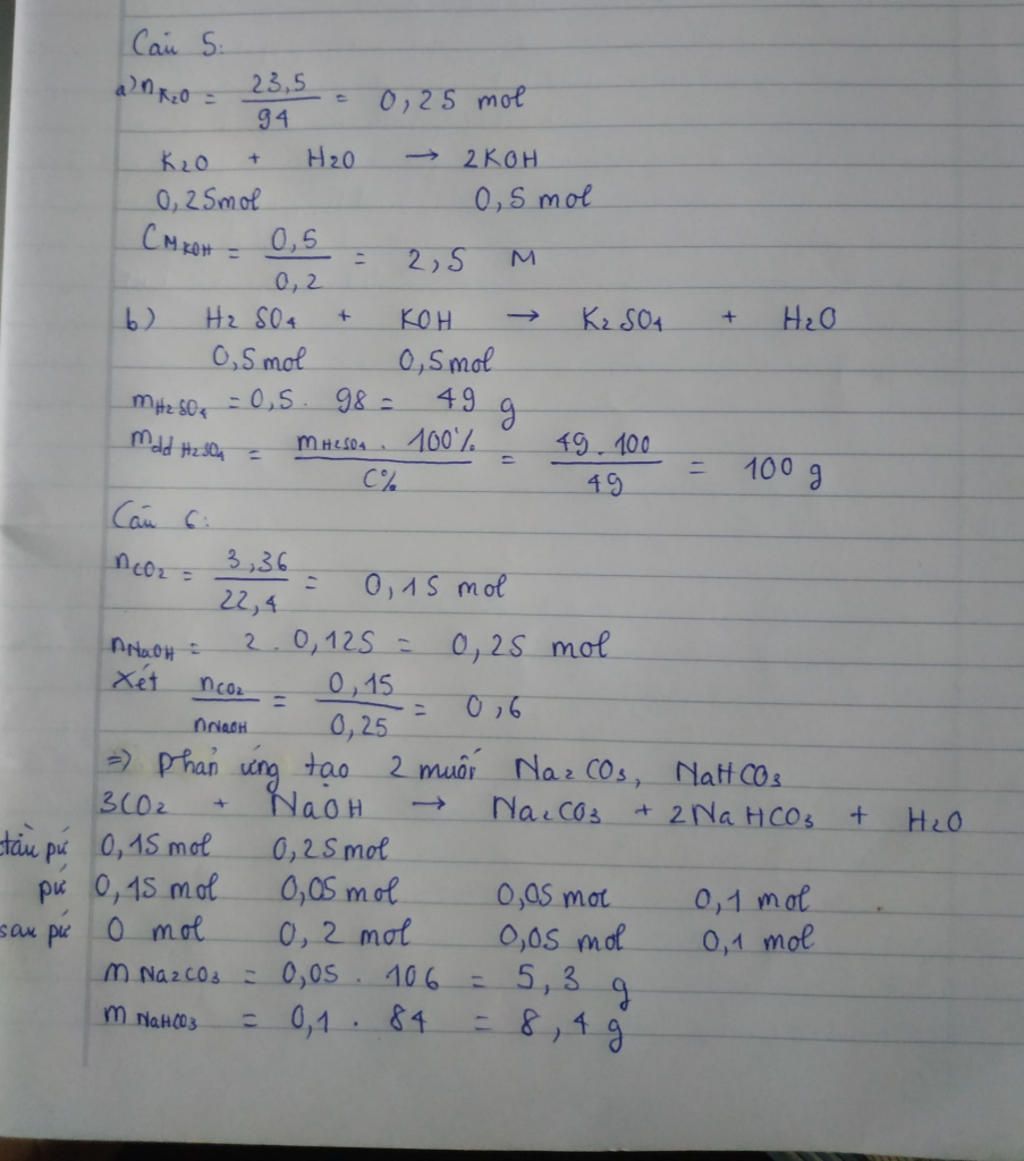 Câu 5:
a) nK2O = 23,5 / 94 = 0,25 mol
K2O + H2O → 2KOH
0,25mol 0,5 mol
CM KOH = 0,5 / 0,2 = 2,5 M
b) H2SO4 + KOH → K2SO4 + H2O
0,5mol 0,5mol
mH2SO4 = 0,5 . 98 = 49 g
mdd H2SO4 = mH2SO4 . 100% / C% = 49 . 100 / 49 = 100 g
Câu 6:
nCO2 = 3,36 / 22,4 = 0,15 mol
nNaOH = 2 . 0,125 = 0,25 mol
Xét nCO2 / nNaOH = 0,15 / 0,25 = 0,6
=> Phản ứng tạo 2 muối Na2CO3, NaHCO3
3CO2 + NaOH → Na2CO3 + 2NaHCO3 + H2O
pứ 0,15mol 0,25mol
pứ 0,15mol 0,05mol 0,05mol 0,1 mol
sau pứ 0 mol 0,2 mol 0,05 mol 0,1 mol
mNa2CO3 = 0,05 . 106 = 5,3 g
mNaHCO3 = 0,1 . 84 = 8,4 g